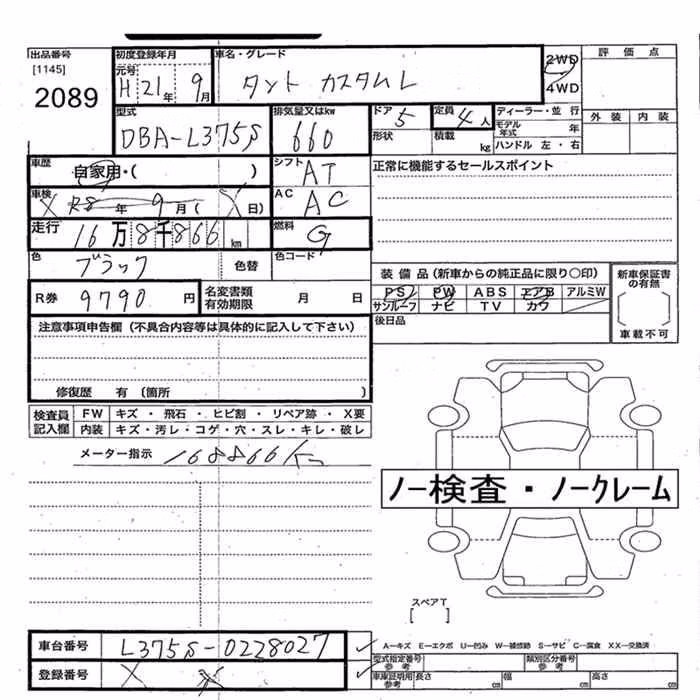 出品番号 [1145] 2089
初度登録年月 元号 H 21年 9月
車名・グレード タント カスタムL
2WD 4WD
評価点
外装 内装
型式 DBA-L375S
排気量又はkw 660
ドア 5
形状
定員 4人
積載 kg
ディーラー・並行
モデル年式 年
ハンドル 左・右
車歴 自家用・( )
シフト AT
正常に機能するセールスポイント
車検 R8年 9月( X日)
AC AC
走行 16万8千866km
燃料 G
色 ブラック 色替
色コード
R券 9790円
名変書類有効期限 月 日
装備品(新車からの純正品に限り〇印)
PS PW ABS エアB アルミW
サンルーフ ナビ TV カワ
後日品
新車保証書の有無
[ ]
車載不可
注意事項申告欄(不具合内容等は具体的に記入して下さい)
修復歴 有(箇所 )
検査員記入欄
FW キズ・飛石・ヒビ割・リペア跡・X要
内装 キズ・汚レ・コゲ・穴・スレ・キレ・破レ
メーター指示 168866km
ノー検査・ノークレーム
スペアT
[ ]
車台番号 L375S-0228027
登録番号 X X
A−キズ E−エクボ U−凹み W−補修跡 S−サビ C−腐食 XX−交換済
型式指定番号 参考
類別区分番号 参考
車庫証明用 参考 長さ cm 幅 cm 高さ cm